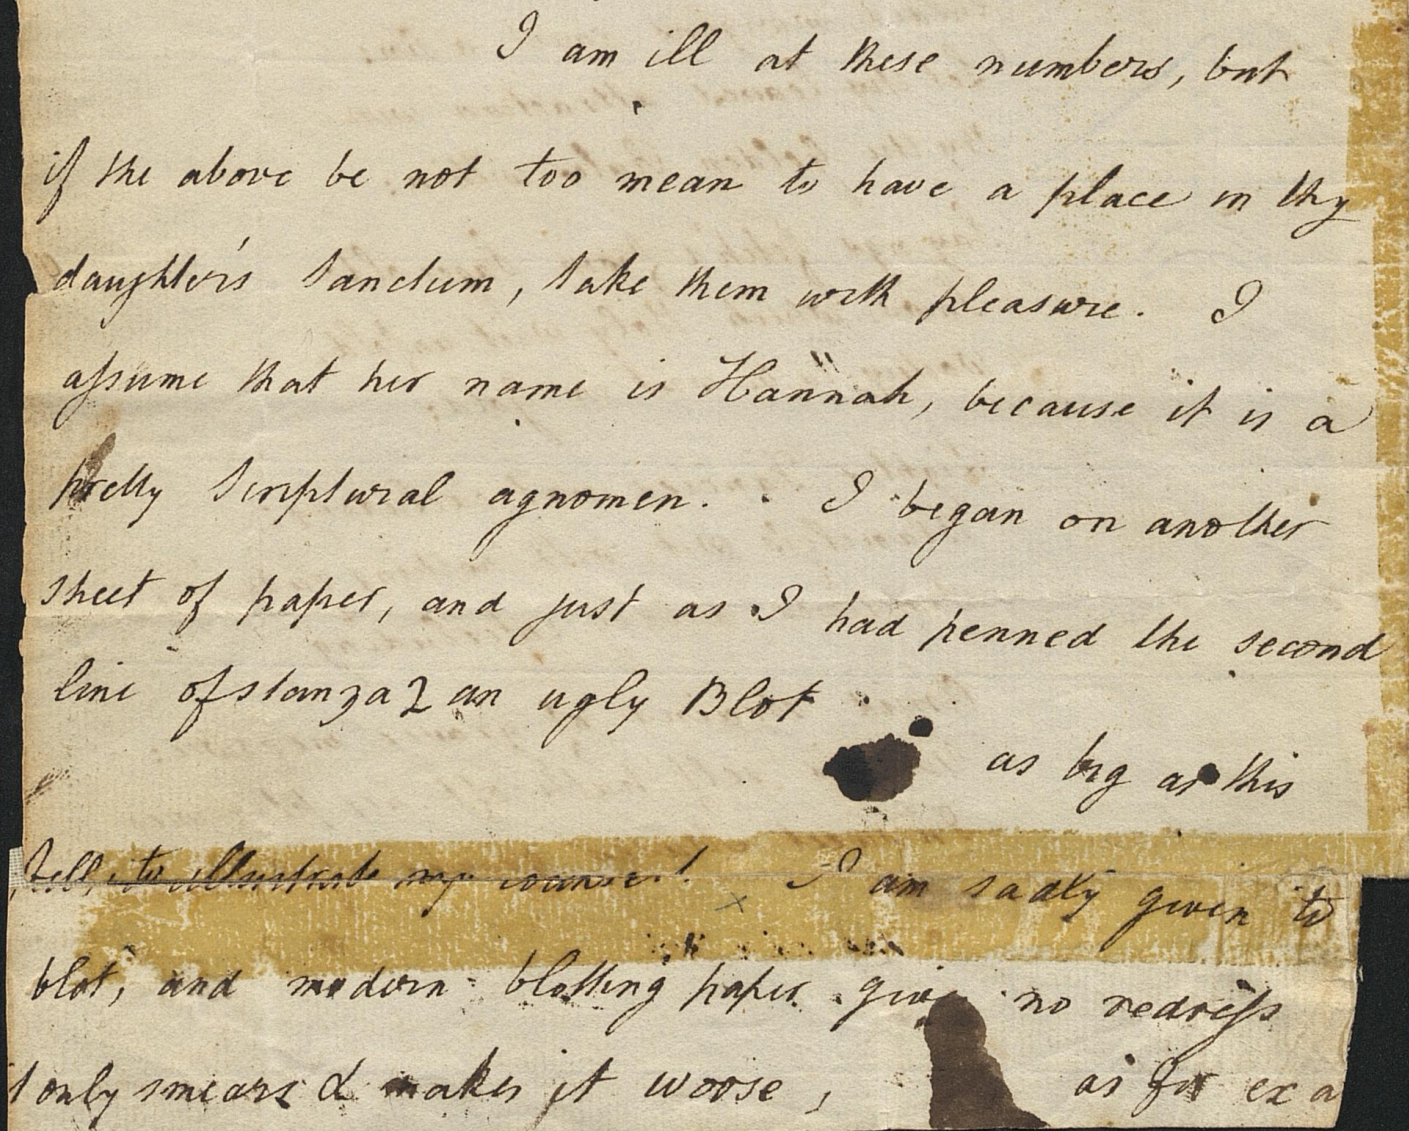 I am ill at these numbers, but
if the above be not too mean to have a place in thy
daughter's Sanctum, take them with pleasure. I
assume that her name is Hannah, because it is a
pretty Scriptural agnomen. I began on another
sheet of paper, and just as I had penned the second
line of stanza 2 an ugly Blot
as big as this
fell, to illustrate my counsel! I am sadly given to
blot, and modern blotting paper gives no redress
only smears & makes it woose,
as for exa